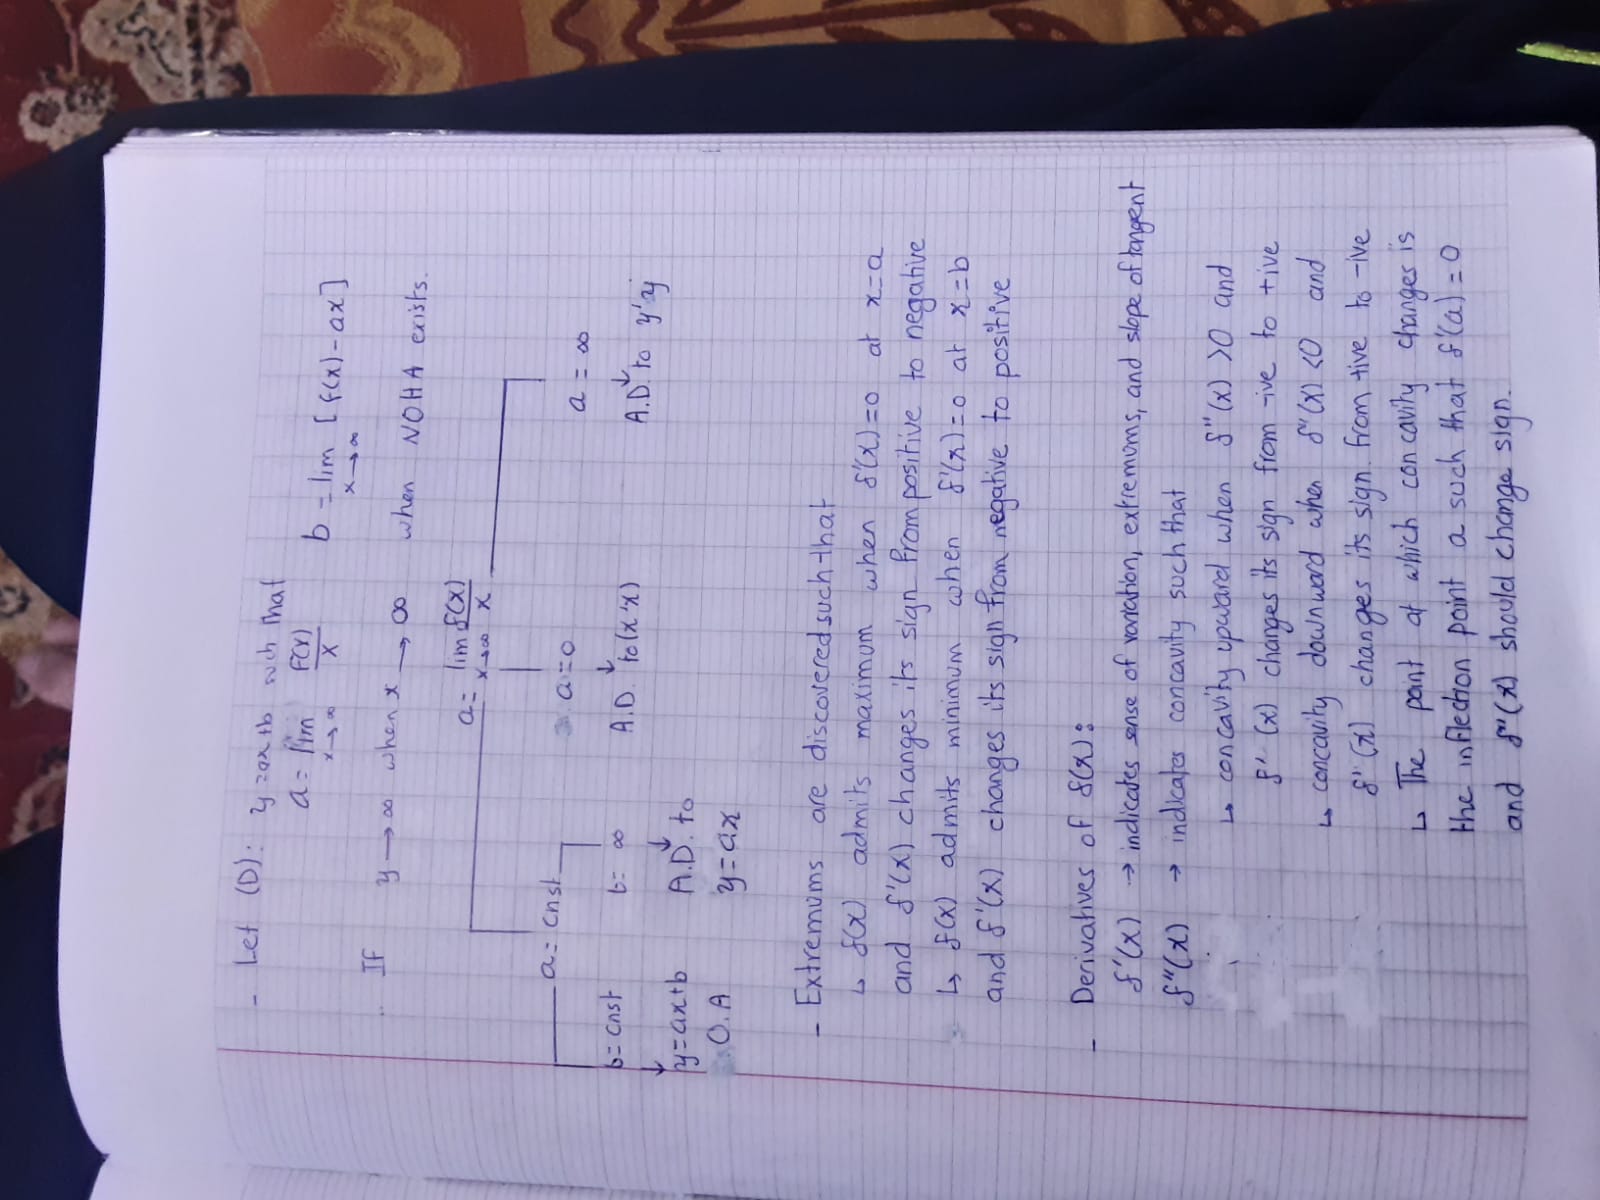 - Let (D): y=ax+b such that
a= lim x→∞ f(x)/x b = lim x→∞ [f(x)-ax]
If y→∞ when x→∞ when NOHA exists.
a= lim x→∞ f(x)/x
a= cnst a=0 a = ∞
b= cnst b= ∞ A.D. to (x'x) A.D. to y'y
y=ax+b A.D. to
O.A y=ax
- Extremums are discovered such that
↳ f(x) admits maximum when f'(x)=0 at x=a
and f'(x) changes its sign from positive to negative
↳ f(x) admits minimum when f'(x)=0 at x=b
and f'(x) changes its sign from negative to positive
- Derivatives of f(x):
f'(x) → indicates sense of variation, extremums, and slope of tangent
f"(x) → indicates concavity such that
↳ concavity upward when f"(x) >0 and
f' (x) changes its sign from -ive to +ive
↳ concavity downward when f"(x) <0 and
f' (x) changes its sign from +ive to -ive
↳ The point at which concavity changes is
the inflection point a such that f'(a) = 0
and f"(x) should change sign.